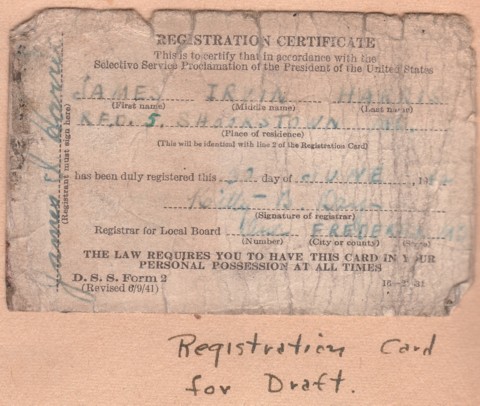 REGISTRATION CERTIFICATE
This is to certify that in accordance with the
Selective Service Proclamation of the President of the United States
JAMES IRVIN HARRIS
(First name) (Middle name) (Last name)
R.F.D. 5.
(Place of residence)
(This will be identical with line 2 of the Registration Card)
has been duly registered this day of JUNE, 19
(Signature of registrar)
Registrar for Local Board FREDERICK
(Number) (City or county) (State)
THE LAW REQUIRES YOU TO HAVE THIS CARD IN YOUR
PERSONAL POSSESSION AT ALL TIMES
D. S. S. Form 2
(Revised 6/9/41)
(Registrant must sign here)
Registration Card
for Draft.